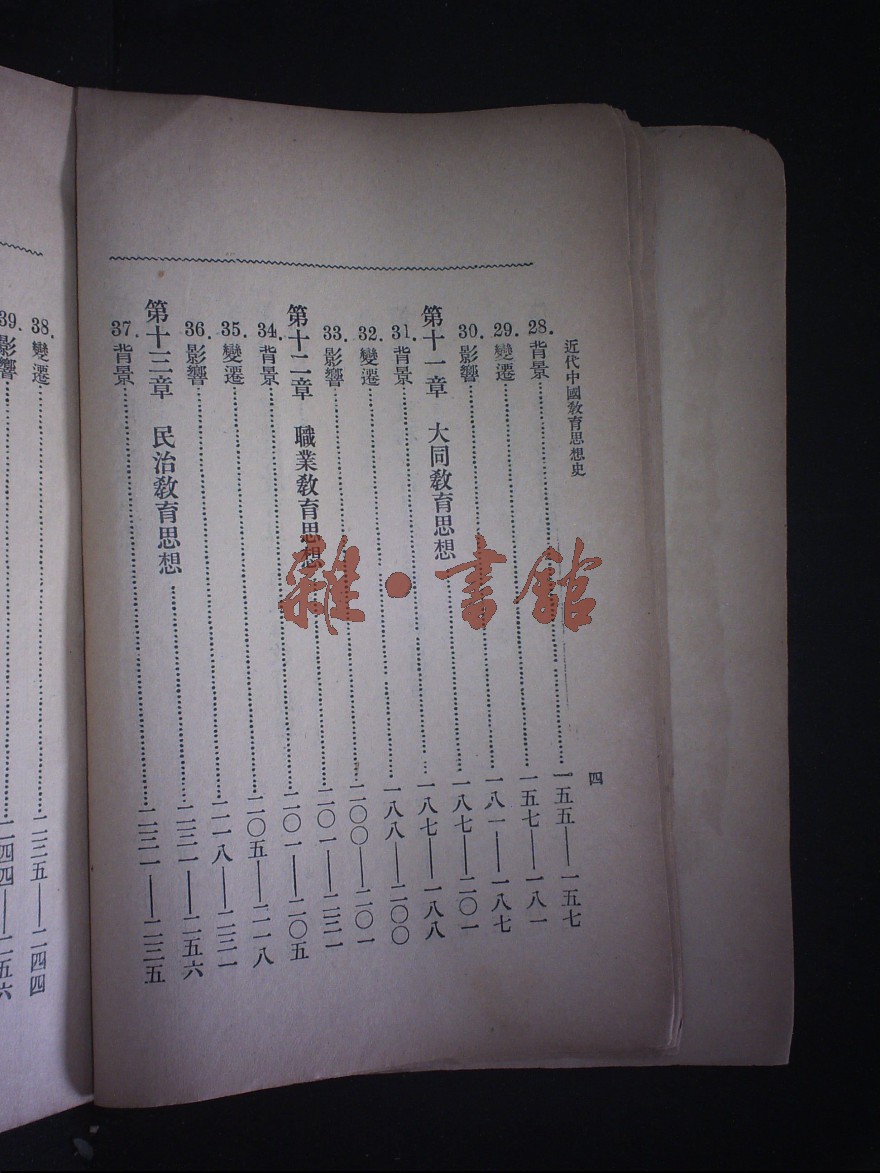 近代中國教育思想史
四
28. 背景……一五五——一五七
29. 變遷……一五七——一八一
30. 影響……一八一——一八七
第十一章 大同教育思想……一八七——二〇一
31. 背景……一八七——一八八
32. 變遷……一八八——二〇〇
33. 影響……二〇〇——二〇一
第十二章 職業教育思想……二〇一——二三一
34. 背景……二〇一——二〇五
35. 變遷……二〇五——二一八
36. 影響……二一八——二三一
第十三章 民治教育思想……二三一——二五六
37. 背景……二三一——二三五
38. 變遷……二三五——二四四
39. 影響……二四四——二五六
雜·書館